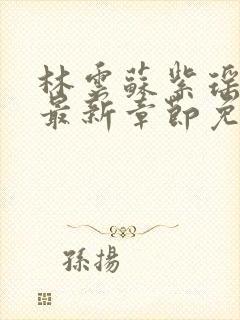 林雲蘇紫瑶
最新章節免
孫揚